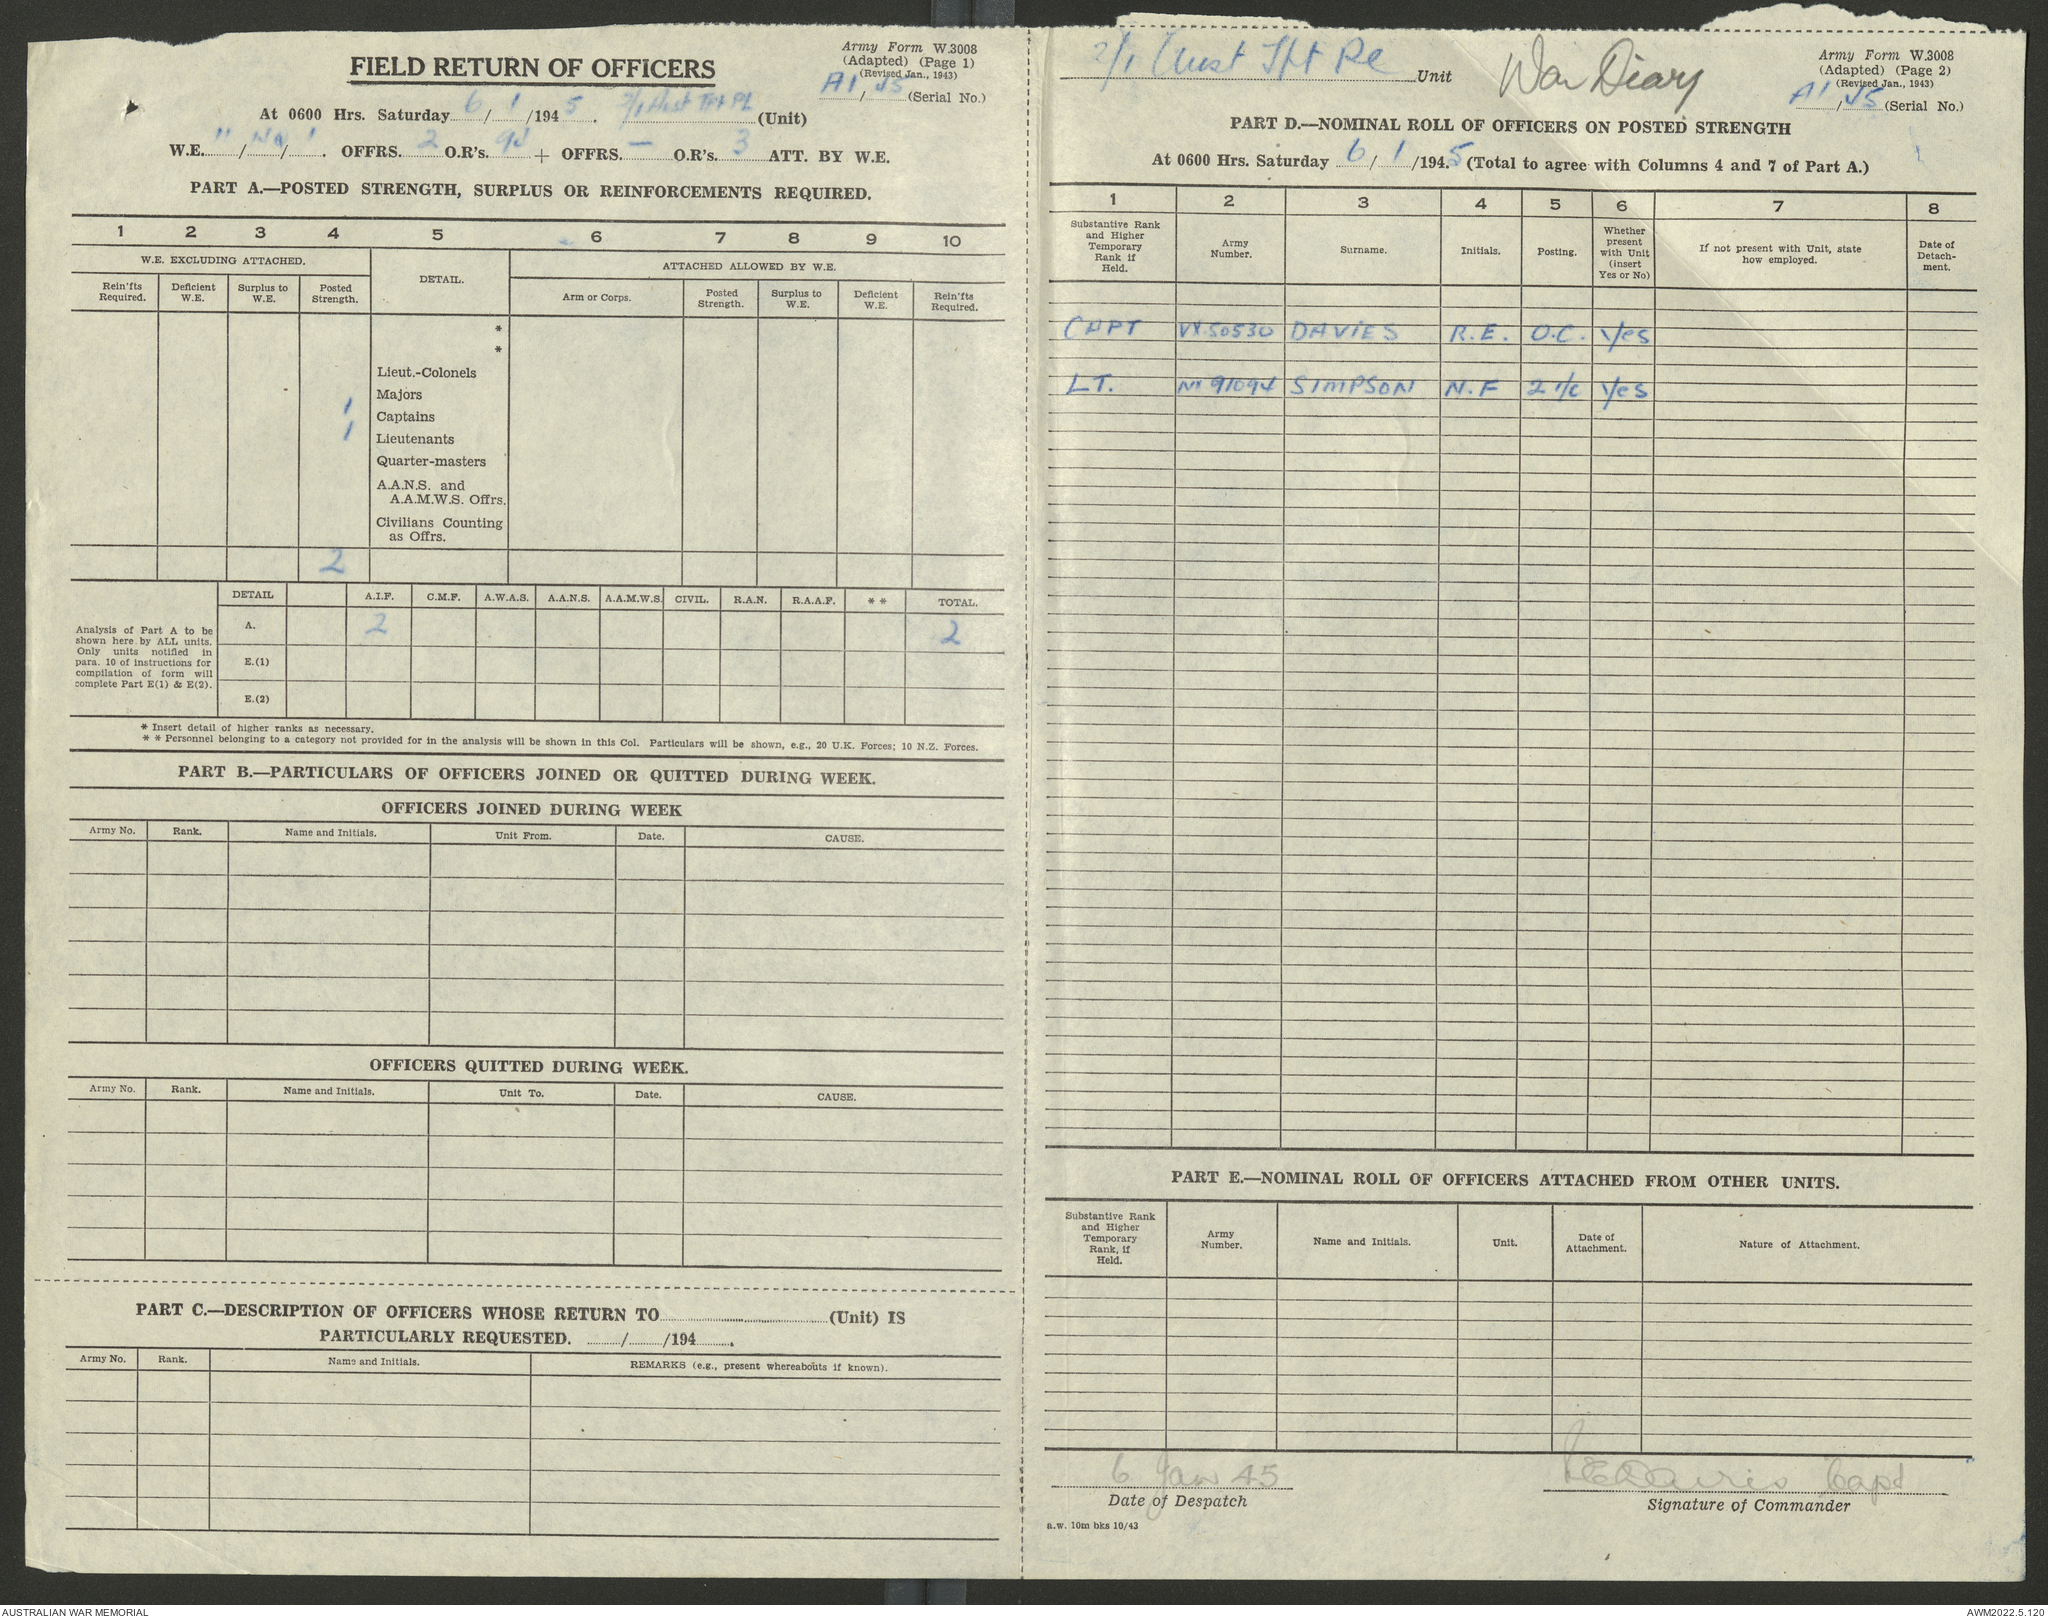 Army Form W.3008
(Adapted) (Page 1)
(Revised Jan., 1943)
A1/45 (Serial No.)
FIELD RETURN OF OFFICERS
At 0600 Hrs. Saturday 6/1/1945. 2/1 Aust Tpt Pl (Unit)
W.E. / / . OFFRS. 2 O.R's. + OFFRS. — O.R's. 3 ATT. BY W.E.
PART A.—POSTED STRENGTH, SURPLUS OR REINFORCEMENTS REQUIRED.
1 2 3 4 5 6 7 8 9 10
W.E. EXCLUDING ATTACHED. DETAIL. ATTACHED ALLOWED BY W.E.
Rein'fts Required. Deficient W.E. Surplus to W.E. Posted Strength. Arm or Corps. Posted Strength. Surplus to W.E. Deficient W.E. Rein'fts Required.
*
*
Lieut.-Colonels
Majors
1 Captains
1 Lieutenants
Quarter-masters
A.A.N.S. and
A.A.M.W.S. Offrs.
Civilians Counting
as Offrs.
2
DETAIL A.I.F. C.M.F. A.W.A.S. A.A.N.S. A.A.M.W.S. CIVIL. R.A.N. R.A.A.F. * * TOTAL.
Analysis of Part A to be
shown here by ALL units.
Only units notified in
para. 10 of instructions for
compilation of form will
complete Part E(1) & E(2).
A. 2 2
E.(1)
E.(2)
* Insert detail of higher ranks as necessary.
* * Personnel belonging to a category not provided for in the analysis will be shown in this Col. Particulars will be shown, e.g., 20 U.K. Forces; 10 N.Z. Forces.
PART B.—PARTICULARS OF OFFICERS JOINED OR QUITTED DURING WEEK.
OFFICERS JOINED DURING WEEK
Army No. Rank. Name and Initials. Unit From. Date. CAUSE.
OFFICERS QUITTED DURING WEEK.
Army No. Rank. Name and Initials. Unit To. Date. CAUSE.
PART C.—DESCRIPTION OF OFFICERS WHOSE RETURN TO (Unit) IS
PARTICULARLY REQUESTED. / /194 .
Army No. Rank. Name and Initials. REMARKS (e.g., present whereabouts if known).
2/1 Aust Tpt Pl Unit
War Diary
Army Form W.3008
(Adapted) (Page 2)
(Revised Jan., 1943)
A1/45 (Serial No.)
PART D.—NOMINAL ROLL OF OFFICERS ON POSTED STRENGTH
At 0600 Hrs. Saturday 6/1/1945 (Total to agree with Columns 4 and 7 of Part A.)
1 2 3 4 5 6 7 8
Substantive Rank and Higher Temporary Rank if Held. Army Number. Surname. Initials. Posting. Whether present with Unit (insert Yes or No) If not present with Unit, state how employed. Date of Detach-ment.
CAPT VX50530 DAVIES R.E. O.C. Yes
LT. NX 91094 SIMPSON N.F 2 I/C Yes
PART E.—NOMINAL ROLL OF OFFICERS ATTACHED FROM OTHER UNITS.
Substantive Rank and Higher Temporary Rank, if Held. Army Number. Name and Initials. Unit. Date of Attachment. Nature of Attachment.
6 Jan 45
Date of Despatch
REDavies Capt
Signature of Commander
a.w. 10m bks 10/43
AUSTRALIAN WAR MEMORIAL
AWM2022.5.120